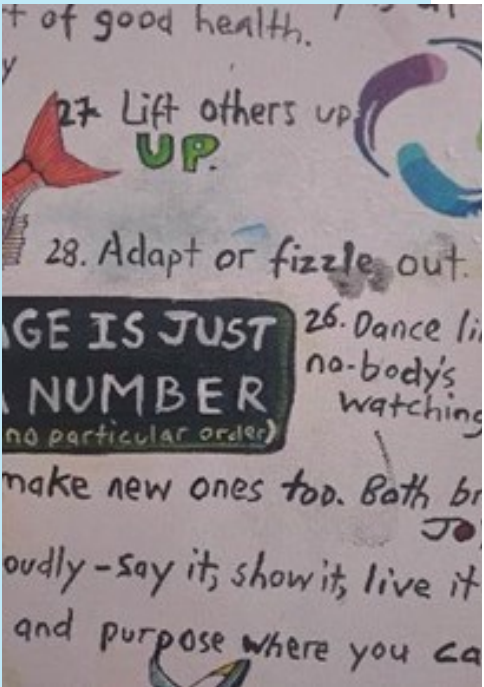 t of good health.
y
27. Lift others up.
UP.
28. Adapt or fizzle out.
AGE IS JUST
A NUMBER
no particular order)
26. Dance li
no-body's
watching
make new ones too. Both br
JO
oudly - say it, show it, live it
and purpose where you ca